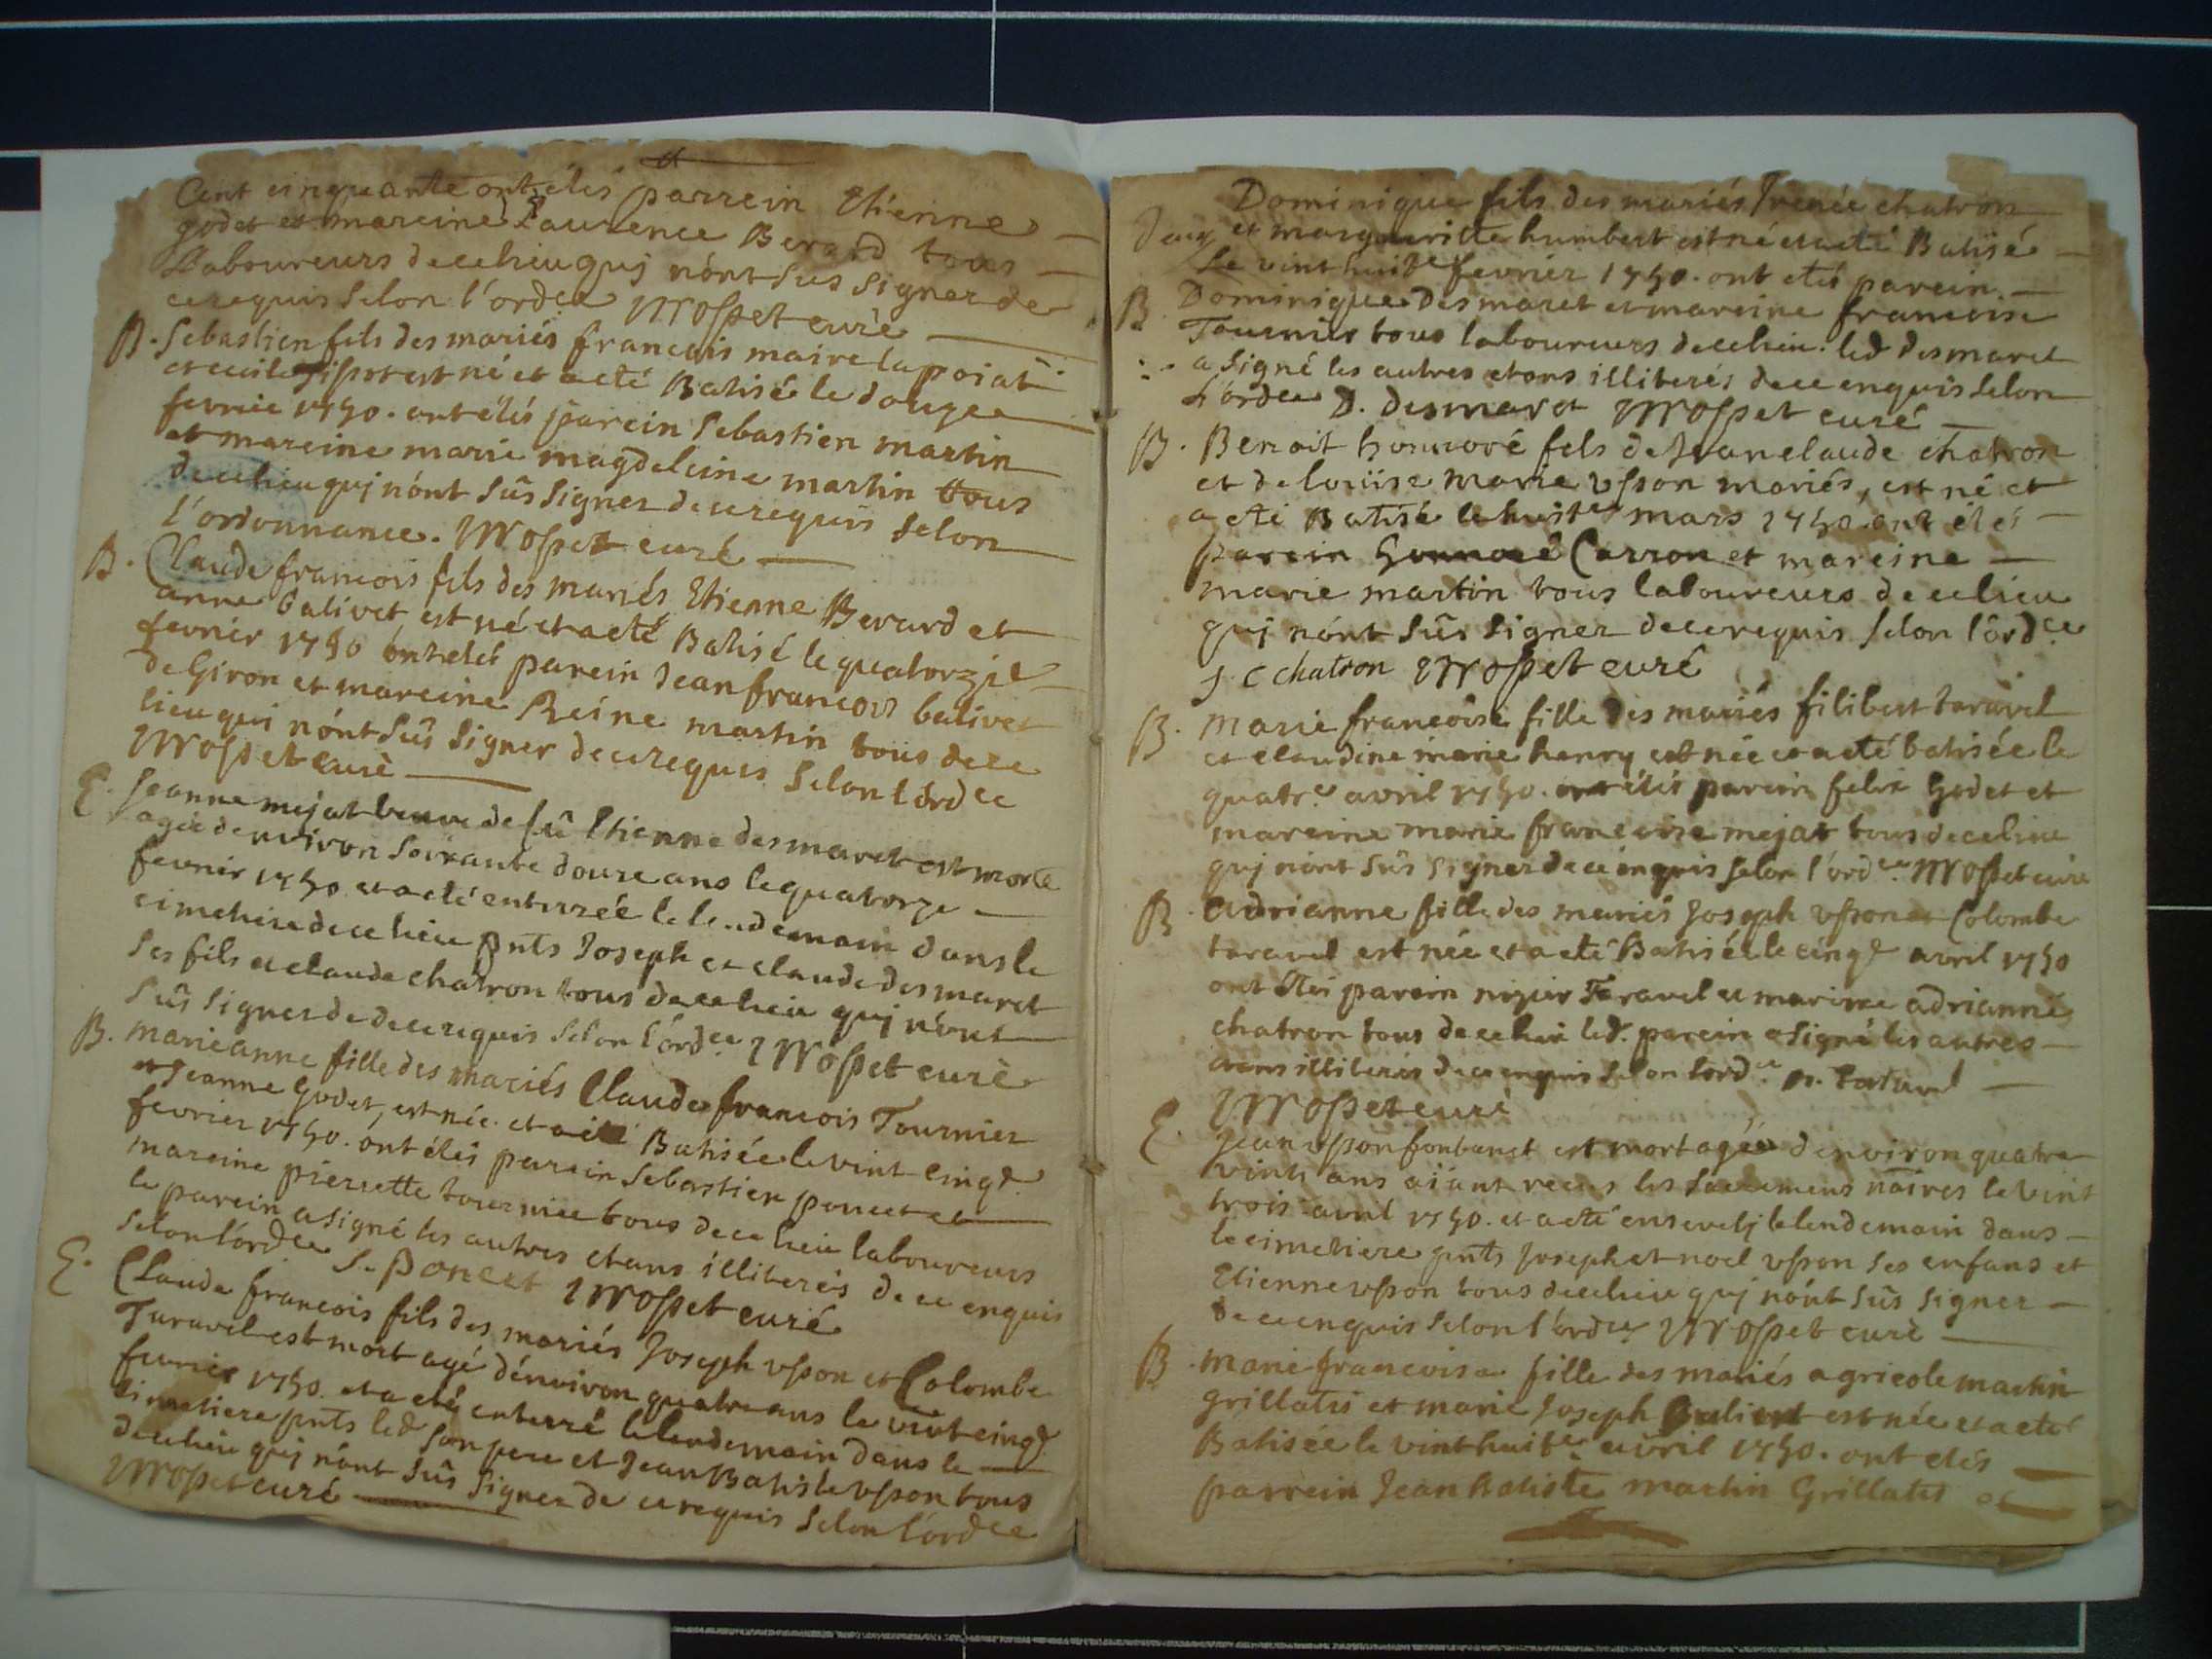 Cent cinquante ont étés parrein Etienne
godet et mareine Laurence Berard tous
Laboureurs de ce lieu quj nónt sus signer de
ce requis selon l'ordce Mosset curé
B. Sebastien fils des mariés francois maire lapoiat
et cecile est né et a eté Batisé le douze
fevrie 1750. ont étés parein Sebastien martin
et mareine marie magdeleine martin tous
de ce lieu quj nónt sûs signer de ce requis selon
l'ordonnance. Mosset curé
B. Claude francois fils des mariés Etienne Berard et
anne balivet est né et a eté Batisé le quatorzie
fevrier 1750 ónt etés parein Jean francois balivet
de Giron et mareine Reine martin tous de ce
lieu qui nónt sûs signer de ce requis selon lórdce
Mosset curé
E. Jeanne mejat veuve de fû Etienne desmaret est morte
agée denviron soixante douze ans le quatorze
fevrier 1750 et a eté enterrée le lendemain dans le
cimetiere de ce lieu pnts Joseph et claude desmaret
ses fils et claude chatron tous de ce lieu quj nónt
sûs signer de de ce requis selon lórdce Mosset curé
B. marieanne fille des mariés Claude francois Tournier
et Jeanne godet, est née et a eté Batisée le vint cinqe
fevrier 1750. ónt étés parein Sebastien poncet et
mareine pierrette tournier tous de ce lieu laboureurs
le parein a signé les autres etans illiterés de ce enquis
selon lórdce S. Poncet Mosset curé
E. Claude francois fils des mariés Joseph vsson et Colombe
Taravel est mort agé dénviron quatre ans le vint cinqe
fevrier 1750. et a eté enterré le lendemain dans le
cimetiere pnts led son pere et Jean Batiste vsson tous
de ce lieu quj nónt sûs signer de ce requis selon lórdce
Mosset curé
Dominique fils des mariés Irenée chatron
et margueritte humbert est né et a eté Batisé
le vint huite fevrier 1750. ont etés parein
B. Dominique desmaret et mareine francoise
Tournier tous laboureurs de ce lieu. led desmaret
a signé les autres etans illiterés de ce enquis selon
l'órdce D. desmaret Mosset curé
B. Benoit honnoré fils de Jean claude chatron
et de loüise marie vsson mariés, est né et
a eté Batisé le huite mars 1750 ont étés
parein honnoré Carron et mareine
marie martin tous laboureurs de ce lieu
quj nónt sûs signer de ce requis selon lórdce
J. C chatron Mosset curé
B. marie francoise fille des mariés filibert taravel
et claudine marie henry est née et a eté batisée le
quatre avril 1750. ont étés parein felix Godet et
mareine marie francoise mejat tous de ce lieu
quj nónt sûs signer de ce enquis selon l'órdce Mosset curé
B. Adrianne fille des mariés Joseph vsson et Colombe
taravel est née et a eté Batisée le cinqe avril 1750
ont étés parein Taravel et mareine adrianne
chatron tous de ce lieu led. parein a signé les autres
etans illiterés de ce enquis selon lordce
Mosset curé
E. Jean vsson fontanet est mort agée denviron quatre
vints ans aïant recus les sacremens náires le vint
trois avril 1750. et a eté ensevelj le lendemain dans
le cimetiere pnts Joseph et noel vsson ses enfans et
Etienne vsson tous de ce lieu quj nónt sûs signer
de ce enquis selon l'órdce Mosset curé
B. marie francoise fille des mariés agricole martin
grillatis et marie Joseph est née et a eté
Batisée le vint huite avril 1750. ont etés
parrein Jean Batiste martin Grillatis et